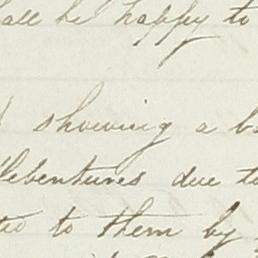 all be happy to
showing a
Debentures due to
to them by